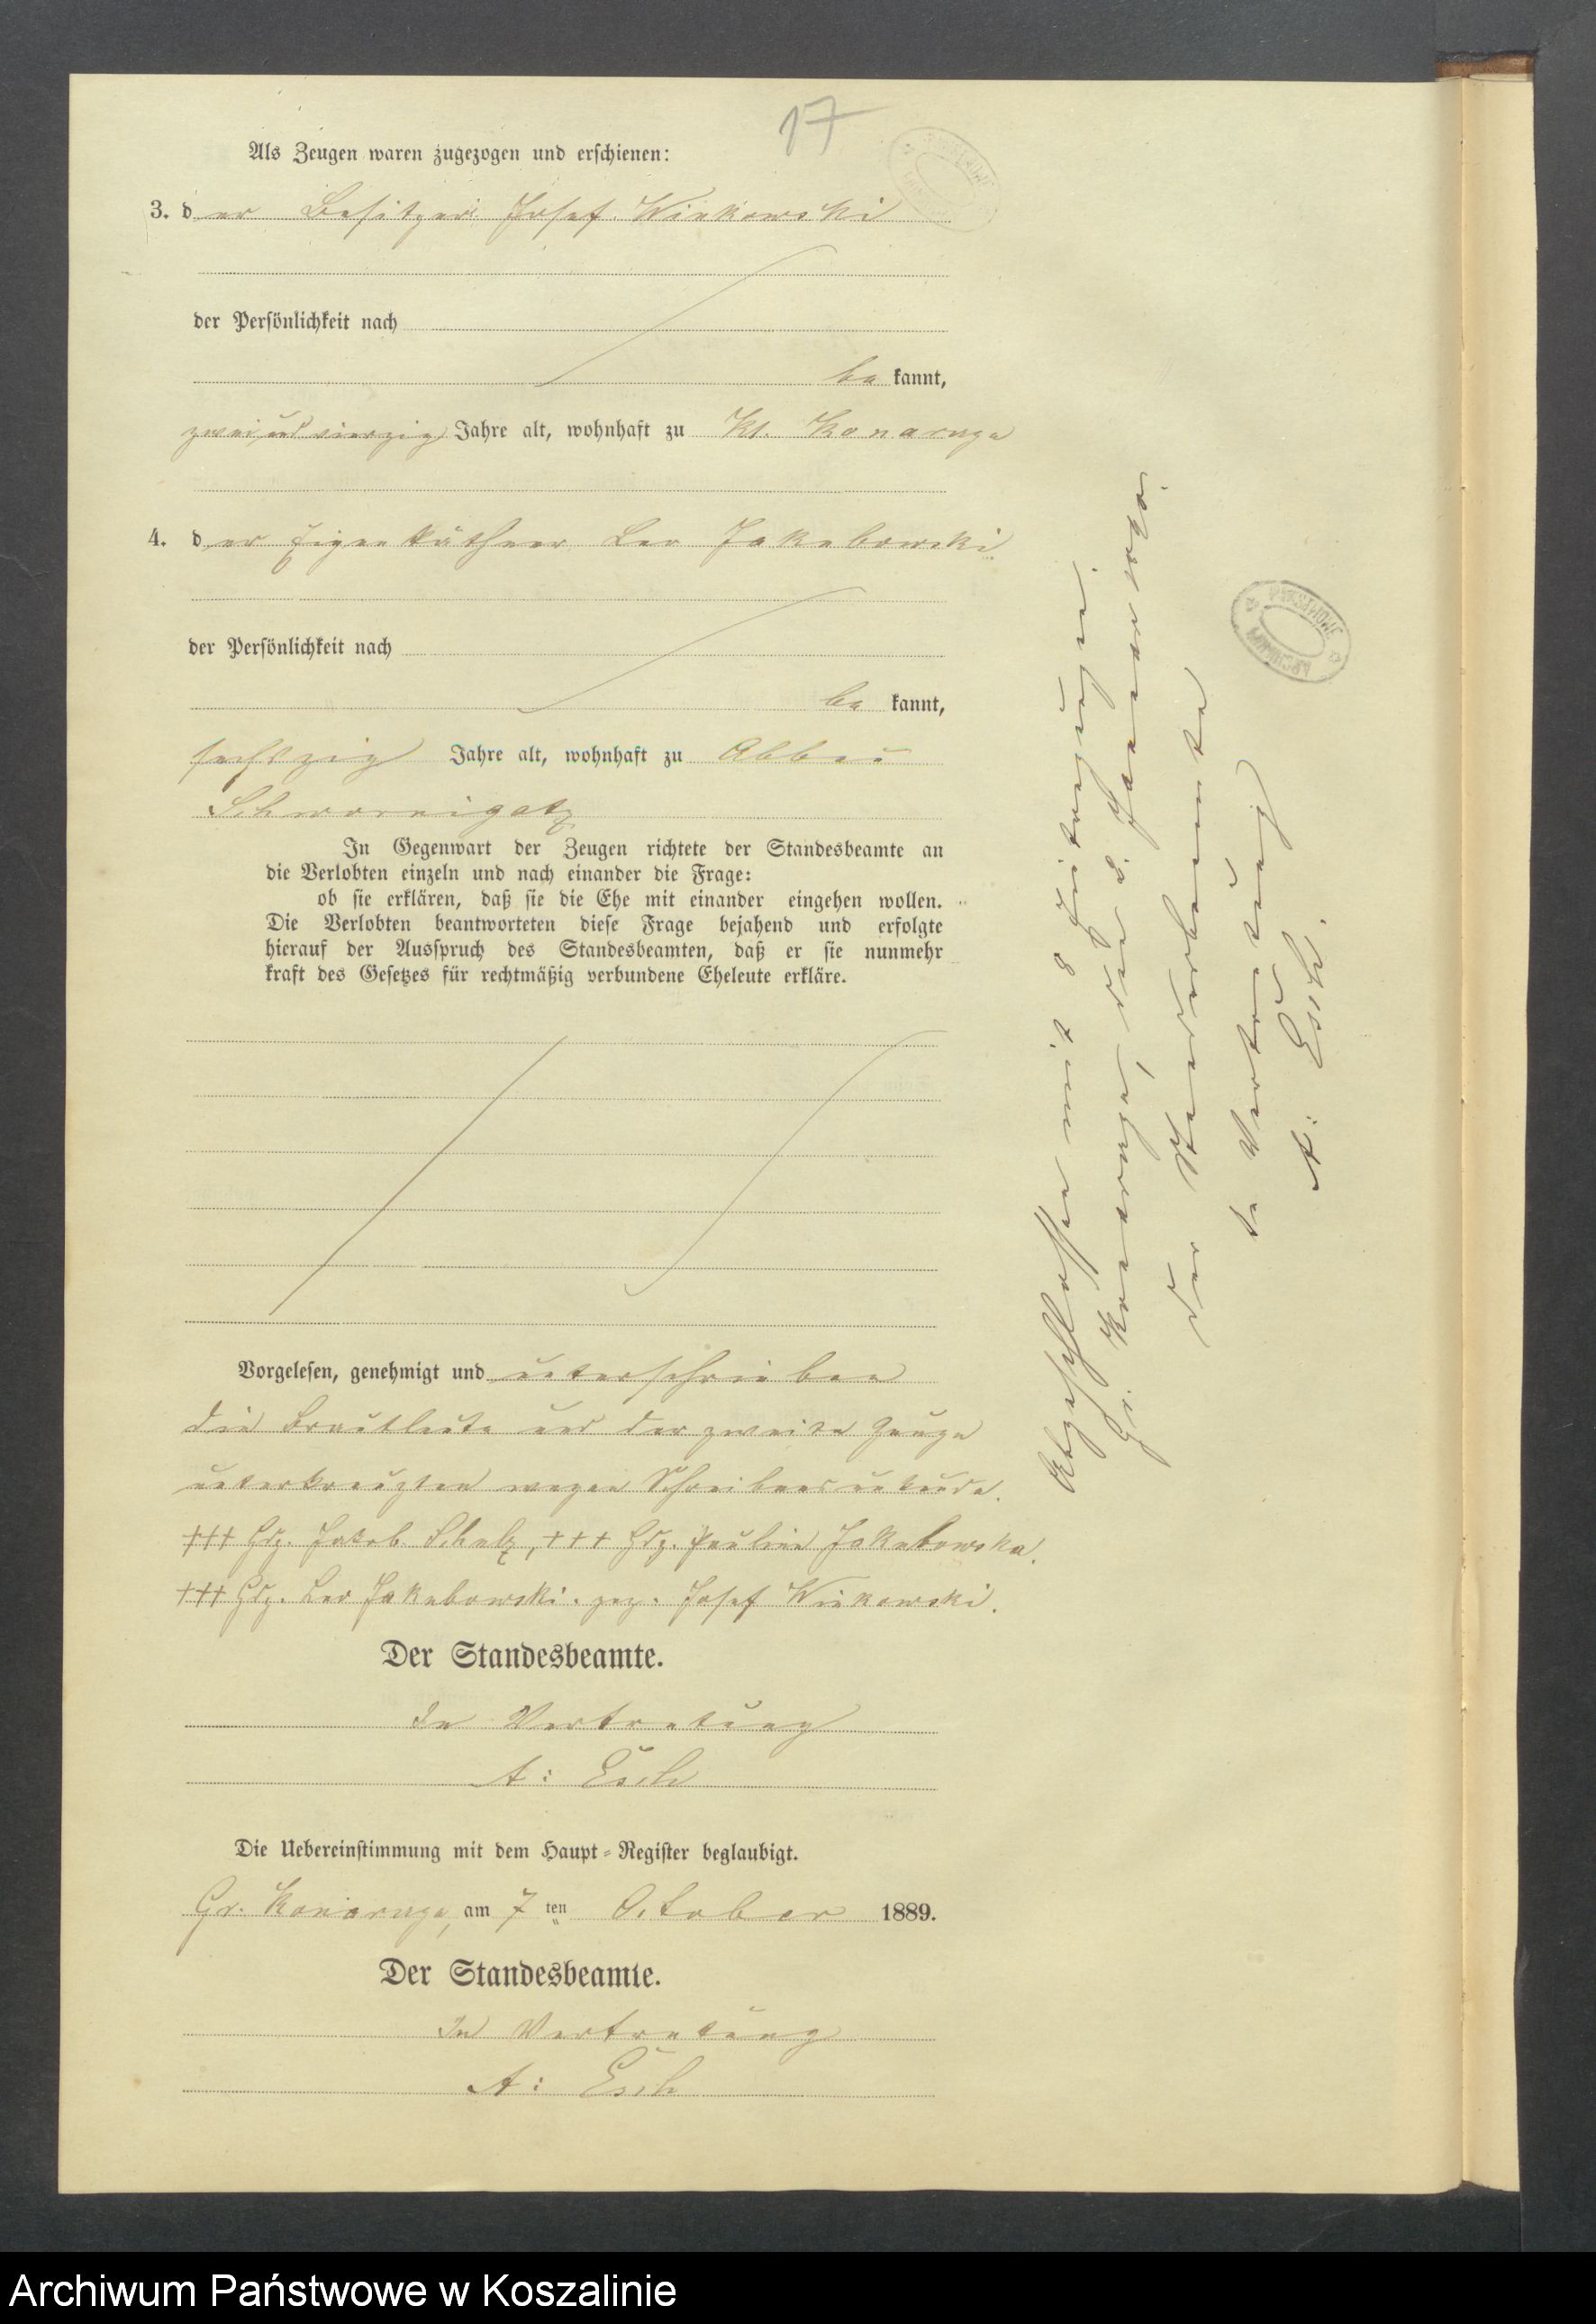 17
Als Zeugen waren zugezogen und erschienen:
3. der Besitzer Josef Winkowski
der Persönlichkeit nach
be kannt,
zwei und vierzig Jahre alt, wohnhaft zu Kl. Konarzyn
4. der Eigenkäthner Leo Jakubowski
der Persönlichkeit nach
be kannt,
sechszig Jahre alt, wohnhaft zu Abbau
Schwornigatz
In Gegenwart der Zeugen richtete der Standesbeamte an
die Verlobten einzeln und nach einander die Frage:
ob sie erklären, daß sie die Ehe mit einander eingehen wollen.
Die Verlobten beantworteten diese Frage bejahend und erfolgte
hierauf der Ausspruch des Standesbeamten, daß er sie nunmehr
kraft des Gesetzes für rechtmäßig verbundene Eheleute erkläre.
Vorgelesen, genehmigt und unterschrieben
die Brautleute und der zweite Zeuge
unterkreuzten wegen Schreibensunkunde.
+++ Hdz. Jakob Schulz, +++ Hdz. Pauline Jakubowska.
+++ Hdz. Leo Jakubowski. gez. Josef Winkowski.
Der Standesbeamte.
In Vertretung
A: Esch
Die Uebereinstimmung mit dem Haupt-Register beglaubigt.
Gr. Konarzyn, am 7 ten October 1889.
Der Standesbeamte.
In Vertretung
A: Esch
Abgeschlossen mit 8 Eintragungen.
Gr. Konarzyn, den 2. Januar 1890.
Der Standesbeamte
In Vertretung
A: Esch.
ARCHIWUM PAŃSTWOWE
Archiwum Państwowe w Koszalinie